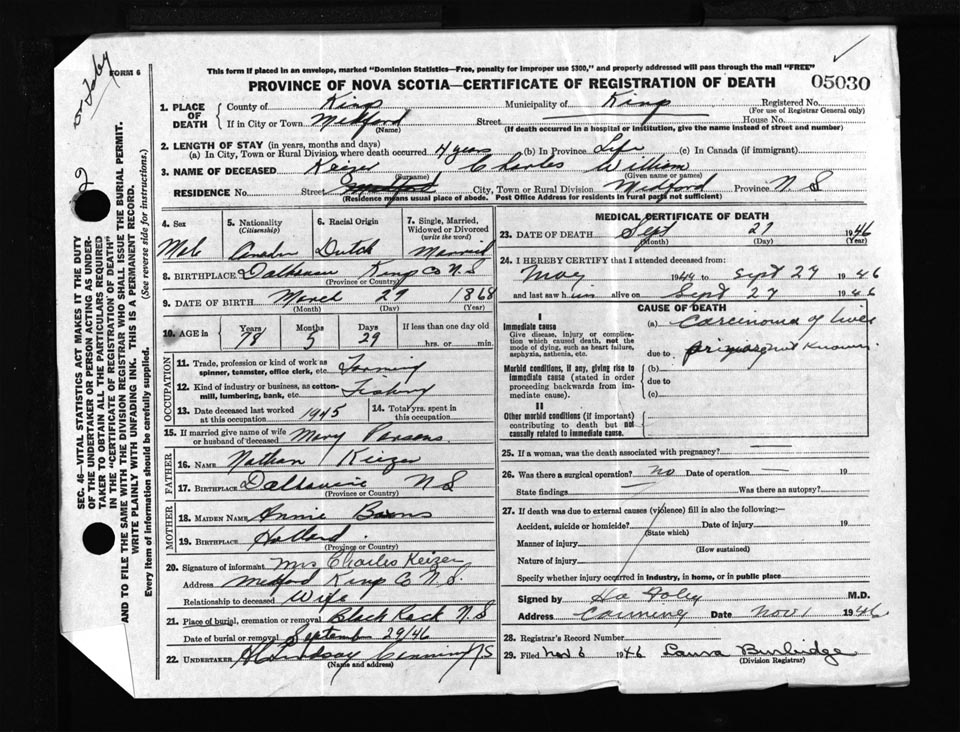 Wm Foley
FORM 6
This form if placed in an envelope, marked "Dominion Statistics—Free, penalty for improper use $300," and properly addressed will pass through the mail "FREE"
PROVINCE OF NOVA SCOTIA—CERTIFICATE OF REGISTRATION OF DEATH
05030
1. PLACE OF DEATH
County of Kings Municipality of Kings Registered No.
(For use of Registrar General only)
If in City or Town Medford Street House No.
(Name) (If death occurred in a hospital or institution, give the name instead of street and number)
2. LENGTH OF STAY (in years, months and days)
(a) In City, Town or Rural Division where death occurred 4 years (b) In Province Life (c) In Canada (if immigrant)
3. NAME OF DECEASED Keizer Charles William
(Surname) (Given name or names)
RESIDENCE No. Street Medford City, Town or Rural Division Medford Province N S
(Residence means usual place of abode. Post Office Address for residents in rural parts not sufficient)
4. Sex
5. Nationality (Citizenship)
6. Racial Origin
7. Single, Married, Widowed or Divorced (write the word)
Male Canadian Dutch Married
8. BIRTHPLACE Kings Co N.S
(Province or Country)
9. DATE OF BIRTH March 29 1868
(Month) (Day) (Year)
10. AGE in
Years Months Days If less than one day old
78 5 29 hrs. or min.
OCCUPATION
11. Trade, profession or kind of work as spinner, teamster, office clerk, etc. Farming
12. Kind of industry or business, as cotton-mill, lumbering, bank, etc. Fishing
13. Date deceased last worked at this occupation 1945
14. Total yrs. spent in this occupation
15. If married give name of wife or husband of deceased Mary Parsons.
FATHER
16. NAME Nathan Keizer
17. BIRTHPLACE N S
(Province or Country)
MOTHER
18. MAIDEN NAME Annie
19. BIRTHPLACE Holland
(Province or Country)
20. Signature of informant Mrs Charles Keizer
Address Medford Kings Co N.S.
Relationship to deceased Wife
21. Place of burial, cremation or removal Black Rock N S
Date of burial or removal September 29/46
22. UNDERTAKER Lindsay Canning NS
(Name and address)
MEDICAL CERTIFICATE OF DEATH
23. DATE OF DEATH Sept 27 1946
(Month) (Day) (Year)
24. I HEREBY CERTIFY that I attended deceased from:
May 1944 to Sept 27 1946
and last saw him alive on Sept 27 1946
CAUSE OF DEATH
I
Immediate cause
Give disease, injury or complication which caused death, not the mode of dying, such as heart failure, asphyxia, asthenia, etc.
(a) Carcinoma of liver
due to primary not known.
Morbid conditions, if any, giving rise to immediate cause (stated in order proceeding backwards from immediate cause).
(b)
due to
(c)
II
Other morbid conditions (if important) contributing to death but not causally related to immediate cause.
25. If a woman, was the death associated with pregnancy?
26. Was there a surgical operation? no Date of operation 19
State findings Was there an autopsy?
27. If death was due to external causes (violence) fill in also the following:—
Accident, suicide or homicide? Date of injury 19
(State which)
Manner of injury
(How sustained)
Nature of injury
Specify whether injury occurred in industry, in home, or in public place
Signed by Foley M.D.
Address Canning Date Nov 1 1946
28. Registrar's Record Number
29. Filed Nov 6 1946 Laura Burbidge
(Division Registrar)
SEC. 46—VITAL STATISTICS ACT MAKES IT THE DUTY
OF THE UNDERTAKER OR PERSON ACTING AS UNDER-
TAKER TO OBTAIN ALL THE PARTICULARS REQUIRED
IN THE "CERTIFICATE OF REGISTRATION OF DEATH"
AND TO FILE THE SAME WITH THE DIVISION REGISTRAR WHO SHALL ISSUE THE BURIAL PERMIT.
WRITE PLAINLY WITH UNFADING INK. THIS IS A PERMANENT RECORD.
Every item of information should be carefully supplied. (See reverse side for instructions.)